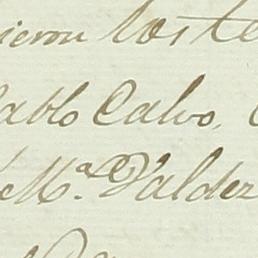 ieron los te
ablo Calvo,
Mª. Valdez